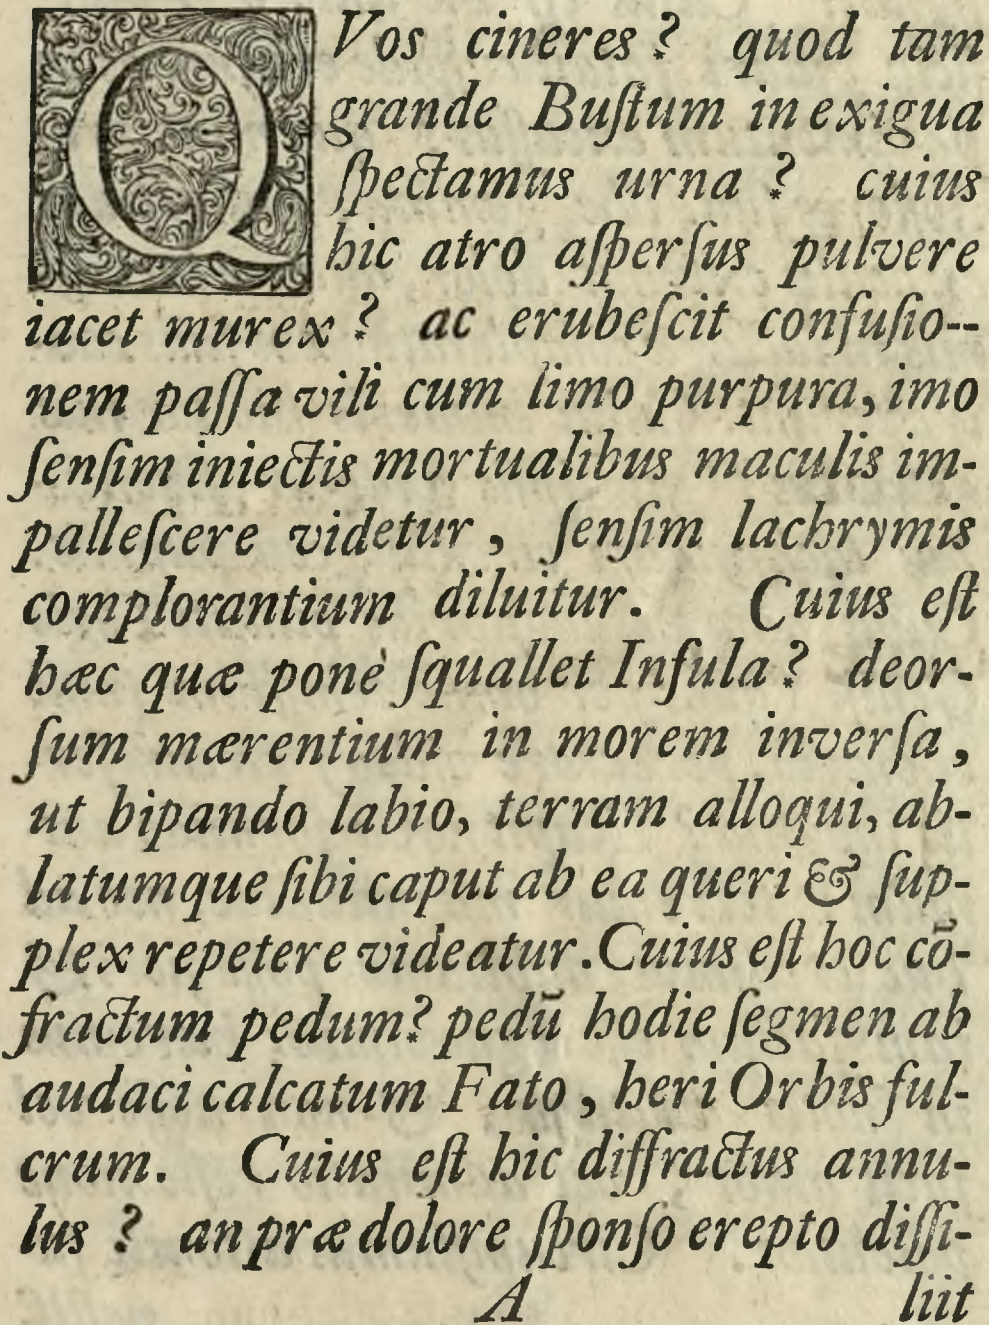 QVos cineres? quod tam
grande Buſtum in exigua
ſpectamus urna? cuius
hic atro aſperſus pulvere
iacet murex? ac erubeſcit confuſio--
nem paſſa vili cum limo purpura, imo
ſenſim iniectis mortualibus maculis im-
palleſcere videtur, ſenſim lachrymis
complorantium diluitur. Cuius eſt
hæc quæ ponè ſquallet Infula? deor-
ſum mærentium in morem inverſa,
ut bipando labio, terram alloqui, ab-
latumque ſibi caput ab ea queri & ſup-
plex repetere videatur. Cuius eſt hoc cō-
fractum pedum? pedū hodie ſegmen ab
audaci calcatum Fato, heri Orbis ful-
crum. Cuius eſt hic diffractus annu-
lus? an præ dolore ſponſo erepto diſſi-
A liit